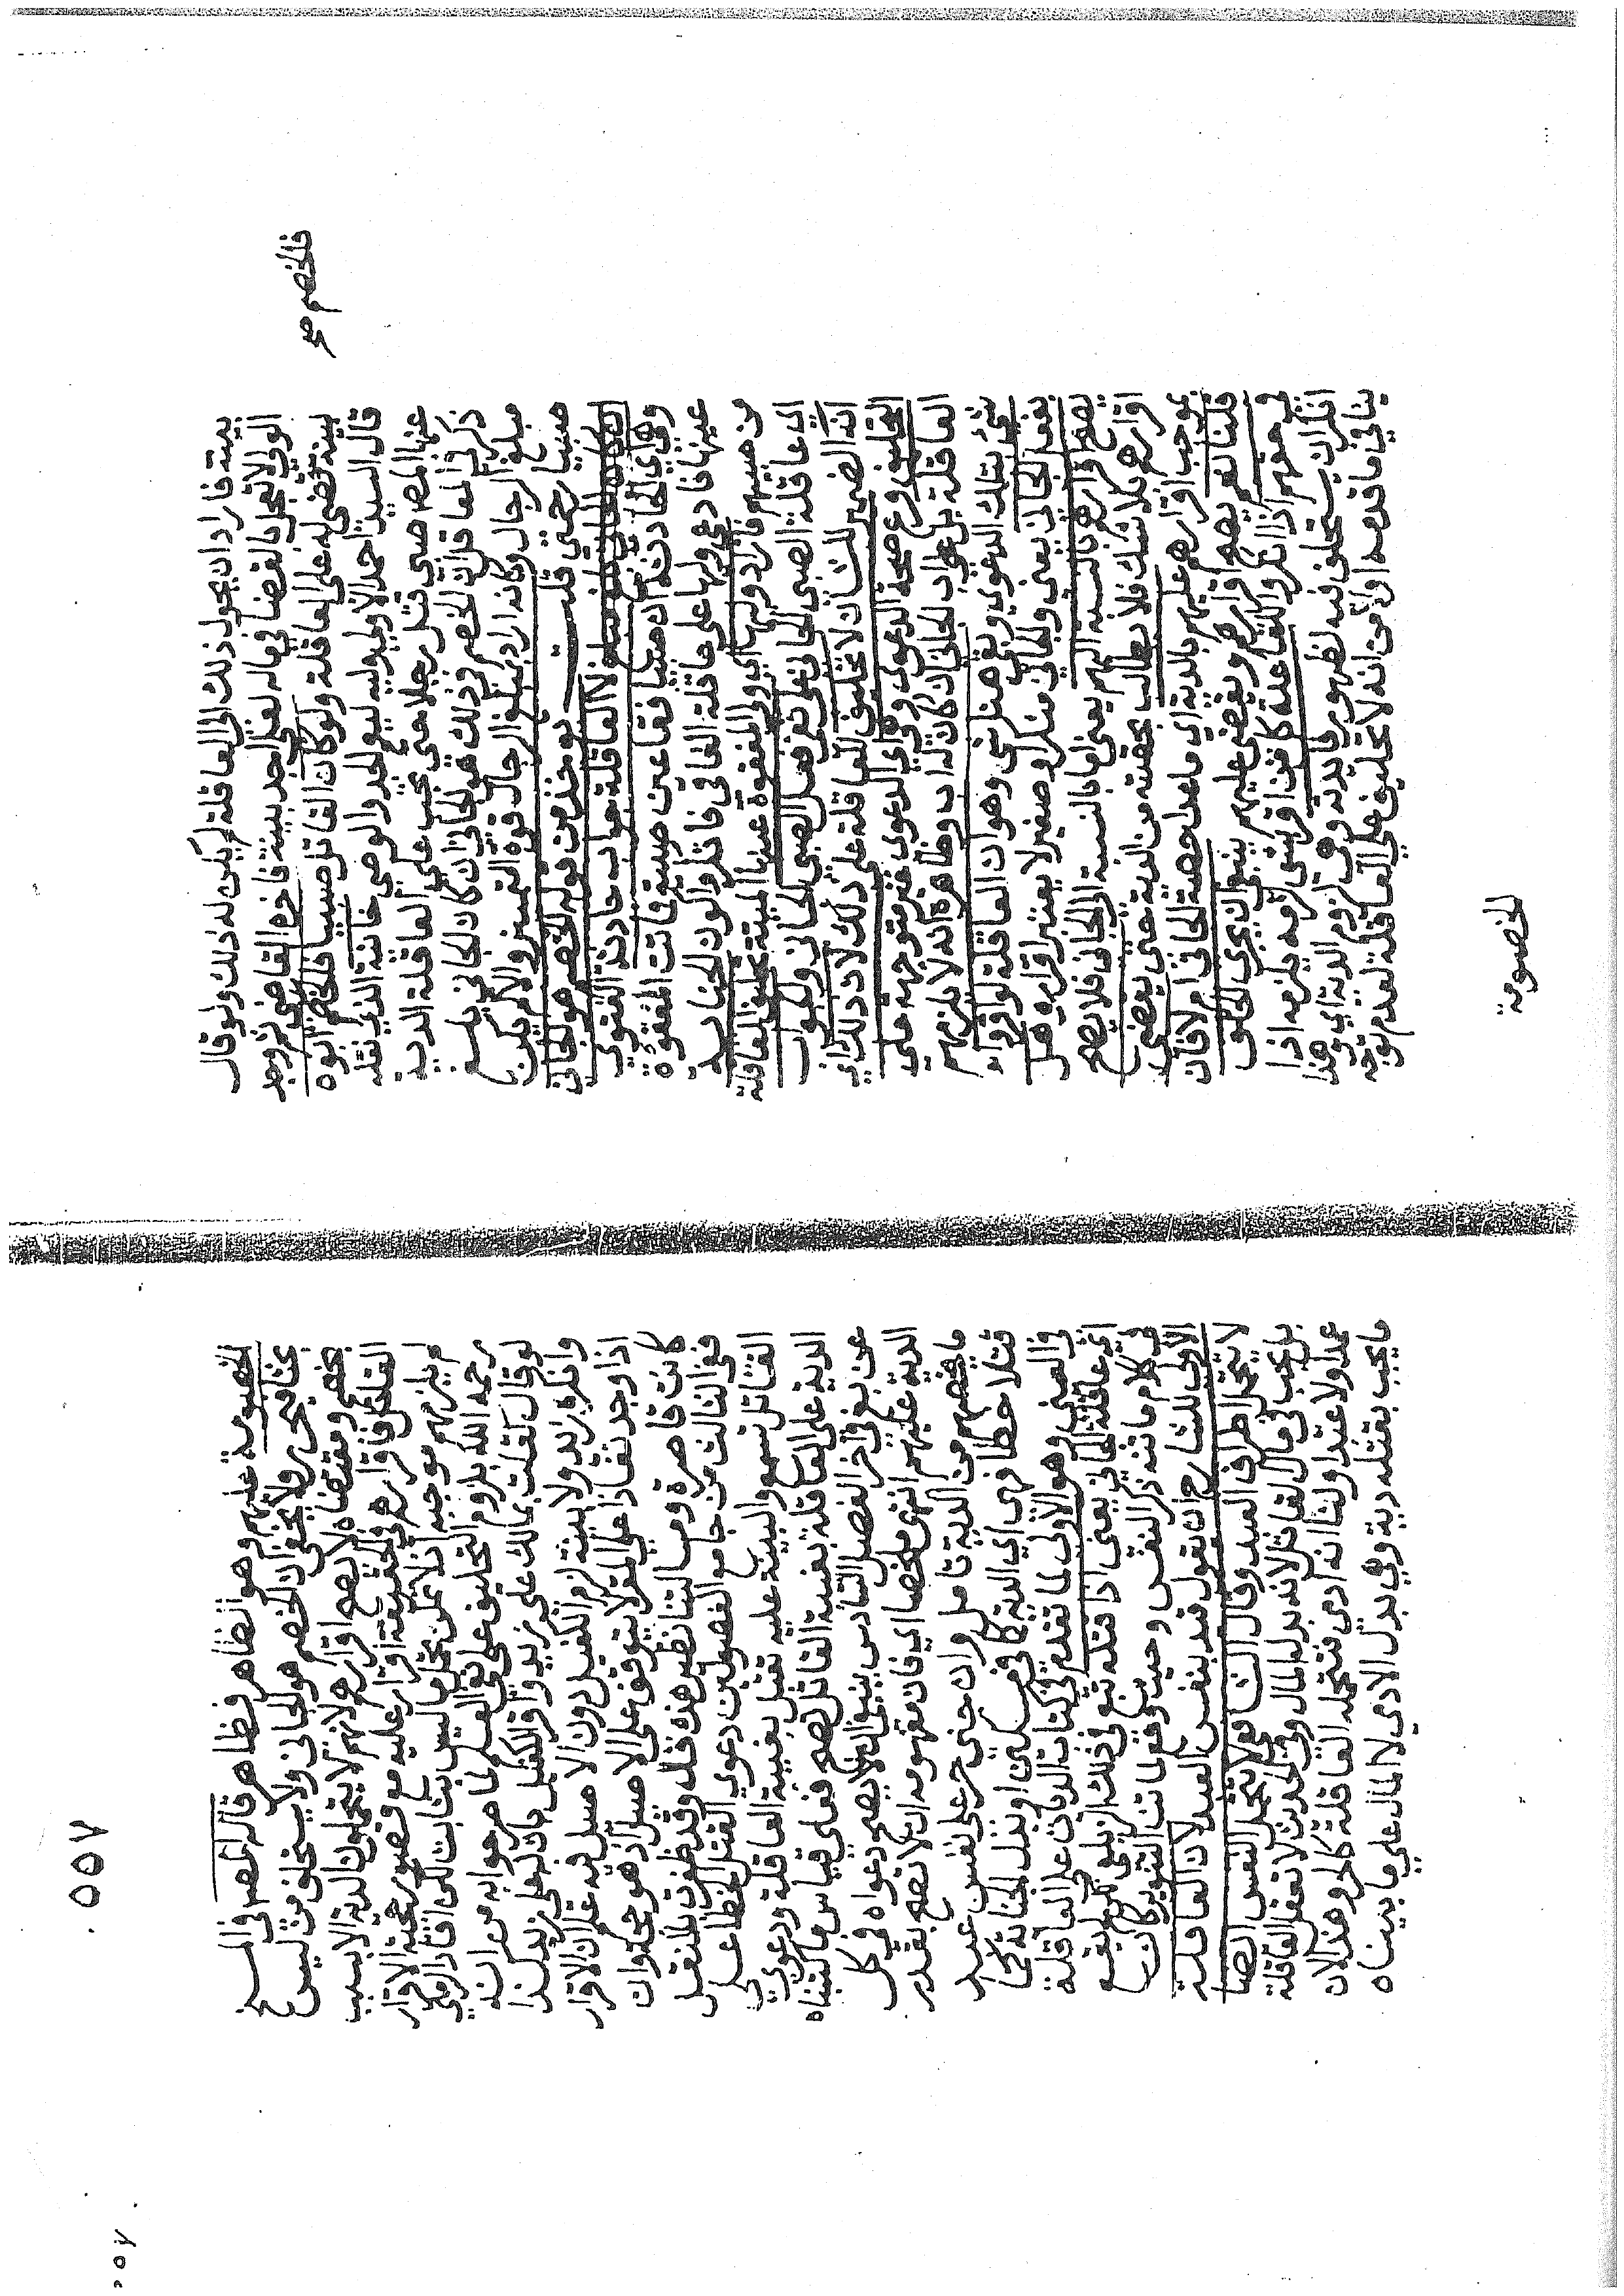 بينة فاراد ان يحول ذلك الى العاقلة لم يكن له ذلك ولو قال
الولي لا تعجل بالقضا في ماله لعلي اجد بينة فاخره القاضي ثم وجد
بينة تقضى له على العاقلة ولو كان القاتل صبيا فالخصم ابوه
فالخصم صح
قال السيد احمد الاولى وليه ليعم الجد والوصي خانية الذي نقله
عنها المص صبي قتل رجلا حتى يجب على العاقلة الدية
ذكر في المعاقل ان الخصم في ذلك هو الجاني ان كان الجاني يبلغ
مبلغ الرجال وكانه اراد بمبلغ الرجال قوة التمييز والا لم يكن
صبيا رحمتي قلت يؤخذ من قوله الخصم هو الجاني
لا العاقلة جواب حادثة الفتوى
وهي اي الحادثة ان صبيا فقا عين صبية فماتت المفقوءة
عينها فادعى وليها على عاقلة الفاقي فانكروا كون الجناية
من صبيهم فاراد وليها اي ولي المفقوءة عينها الميتة تحليف العاقلة
اي عاقلة الصبي الجاني على نفي فعل الصبي الجاني والجواب
انه الضمير للشان لا تحليف للعاقلة على ذلك لان ذلك اي
التحليف فرع صحة الدعوى وهي اي الدعوى غير متوجهة على
العاقلة بل على اب الجاني ان كان له اب وظاهره انه لا يلزمهم
شي بتلك الدعوى وبقي هنا شي وهو ان العاقلة لو اقروا
بفعل الجاني يعني والجاني منكر او صغير لا يعتبر اقراره هل
يصح اقرارهم بالنسبة اليهم يعني اما بالنسبة الى الجاني فلا يصح
اقرارهم بلا شك فلا يطالب بحصته من الدية حتى يقضي
بموجب اقرارهم عليهم بالدية اي ما عدا حصة الجاني ام لا فان
قلنا نعم يصح اقرارهم ويقضى عليهم ينبغي ان يجري الحلف
في حقهم اذا انكروا الفعل منه كما فمن اقر بشي لزمه يلزمه اذا
انكر ان يستحلف فيه لظهور فائدته وهي لزوم الدية اي وهذا
ينافي ما قدمه اولا من انه لا تحليف على العاقلة لعدم توجه
الخصومة
الخصومة عليهم وهو الظاهر فظاهر قاله المصنف في المنح
بخطه فيحرر ولا يخفى ان الخصم هو الجاني ولا يستحلف من ليس
بخصم ومقتضاه لا يصح اقرارهم لانهم لا يتحملون الدية الا بسبب
القتل فاقرارهم في الحقيقة اقرار عليه مع قصور حجية الاقرار
فلا يلزمهم موجبه اذ لا يمكن تحمل ما ليس بثابت لكن افاد الرملي
رحمه الله بلزوم التحليف على نفي العلم لما صرحوا به من انه
لو قال كفلت بمالك على زيد واقر الكفيل بان له على زيد كذا
وانكره زيد ولا بينة لزم الكفيل دون الاصيل وفيه علم ان الاقرار
اذا وجد نفاذا على المقر لا يتوقف على الاصيل اذ هو حجة وان
كانت قاصرة ومسالتنا نظير هذه قلت وقد ظفرت بالنقل
ففي الثالث من جامع الفصولين دعوى القتل الخطا على
القاتل تسمع والبينة عليه تقبل بغيبة العاقلة ودعوى
الدية على العاقلة بغيبة القاتل تصح فعلى قياس ما كتبناه
عن بغ في اخر الفصل السادس ينبغي ان لا يصح دعواه في كل
الدية عليهم انتهى ملخصا اي فان مفهومه ان لا تصح بقدر
ما يخصهم من الدية تامل وان جنى حر على نفس عبد
قتلا خطا فهي اي الدية كما في مسكين او بدل الجناية كما
في العيني وهو الاولى لما تقدم في كتاب الديات على العاقلة
اي عاقلة الجاني يعني اذا قتله تبع في ذلك الزيلعي لكن لم يقع
في كلام ماتنه ذكر النفس وحيث وقع لماتن التنوير كان
الاولى للشارح ان تقول قيد بنفس العبد لان العاقلة
لا تتحمل اطراف العبد وقال الشافعي لا تتحمل النفس ايضا
بل يجب في مال القاتل لانه بدل المال وفي الحديث لا تعقل العاقلة
عمدا ولا عبدا ولنا انه ادمي فتتحمله العاقلة كالحر وهذا لان
ما يجب بقتله دية وهي بدل الادمي لا المال على ما بيناه
٥٥٧
٥٥٧